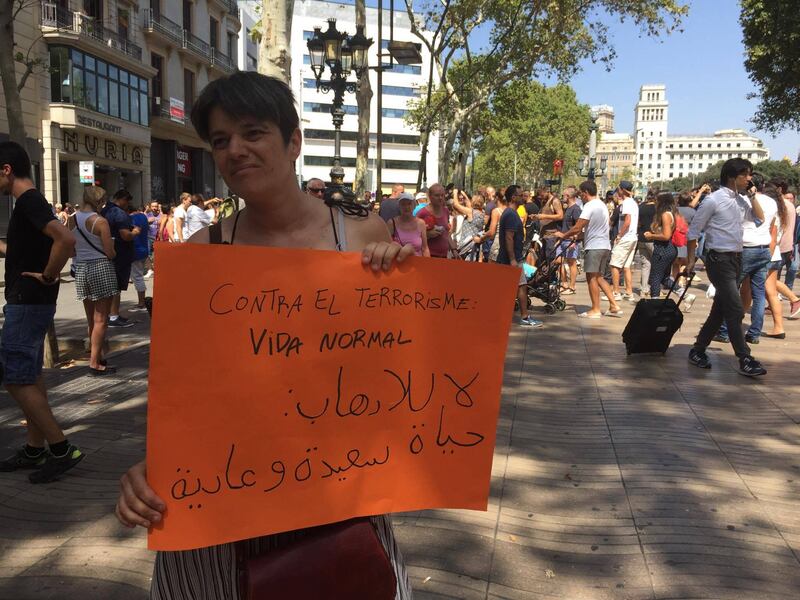 RESTAURANT
NURIA
CONTRA EL TERRORISME:
VIDA NORMAL
لا للارهاب:
حياة سعيدة وعادية